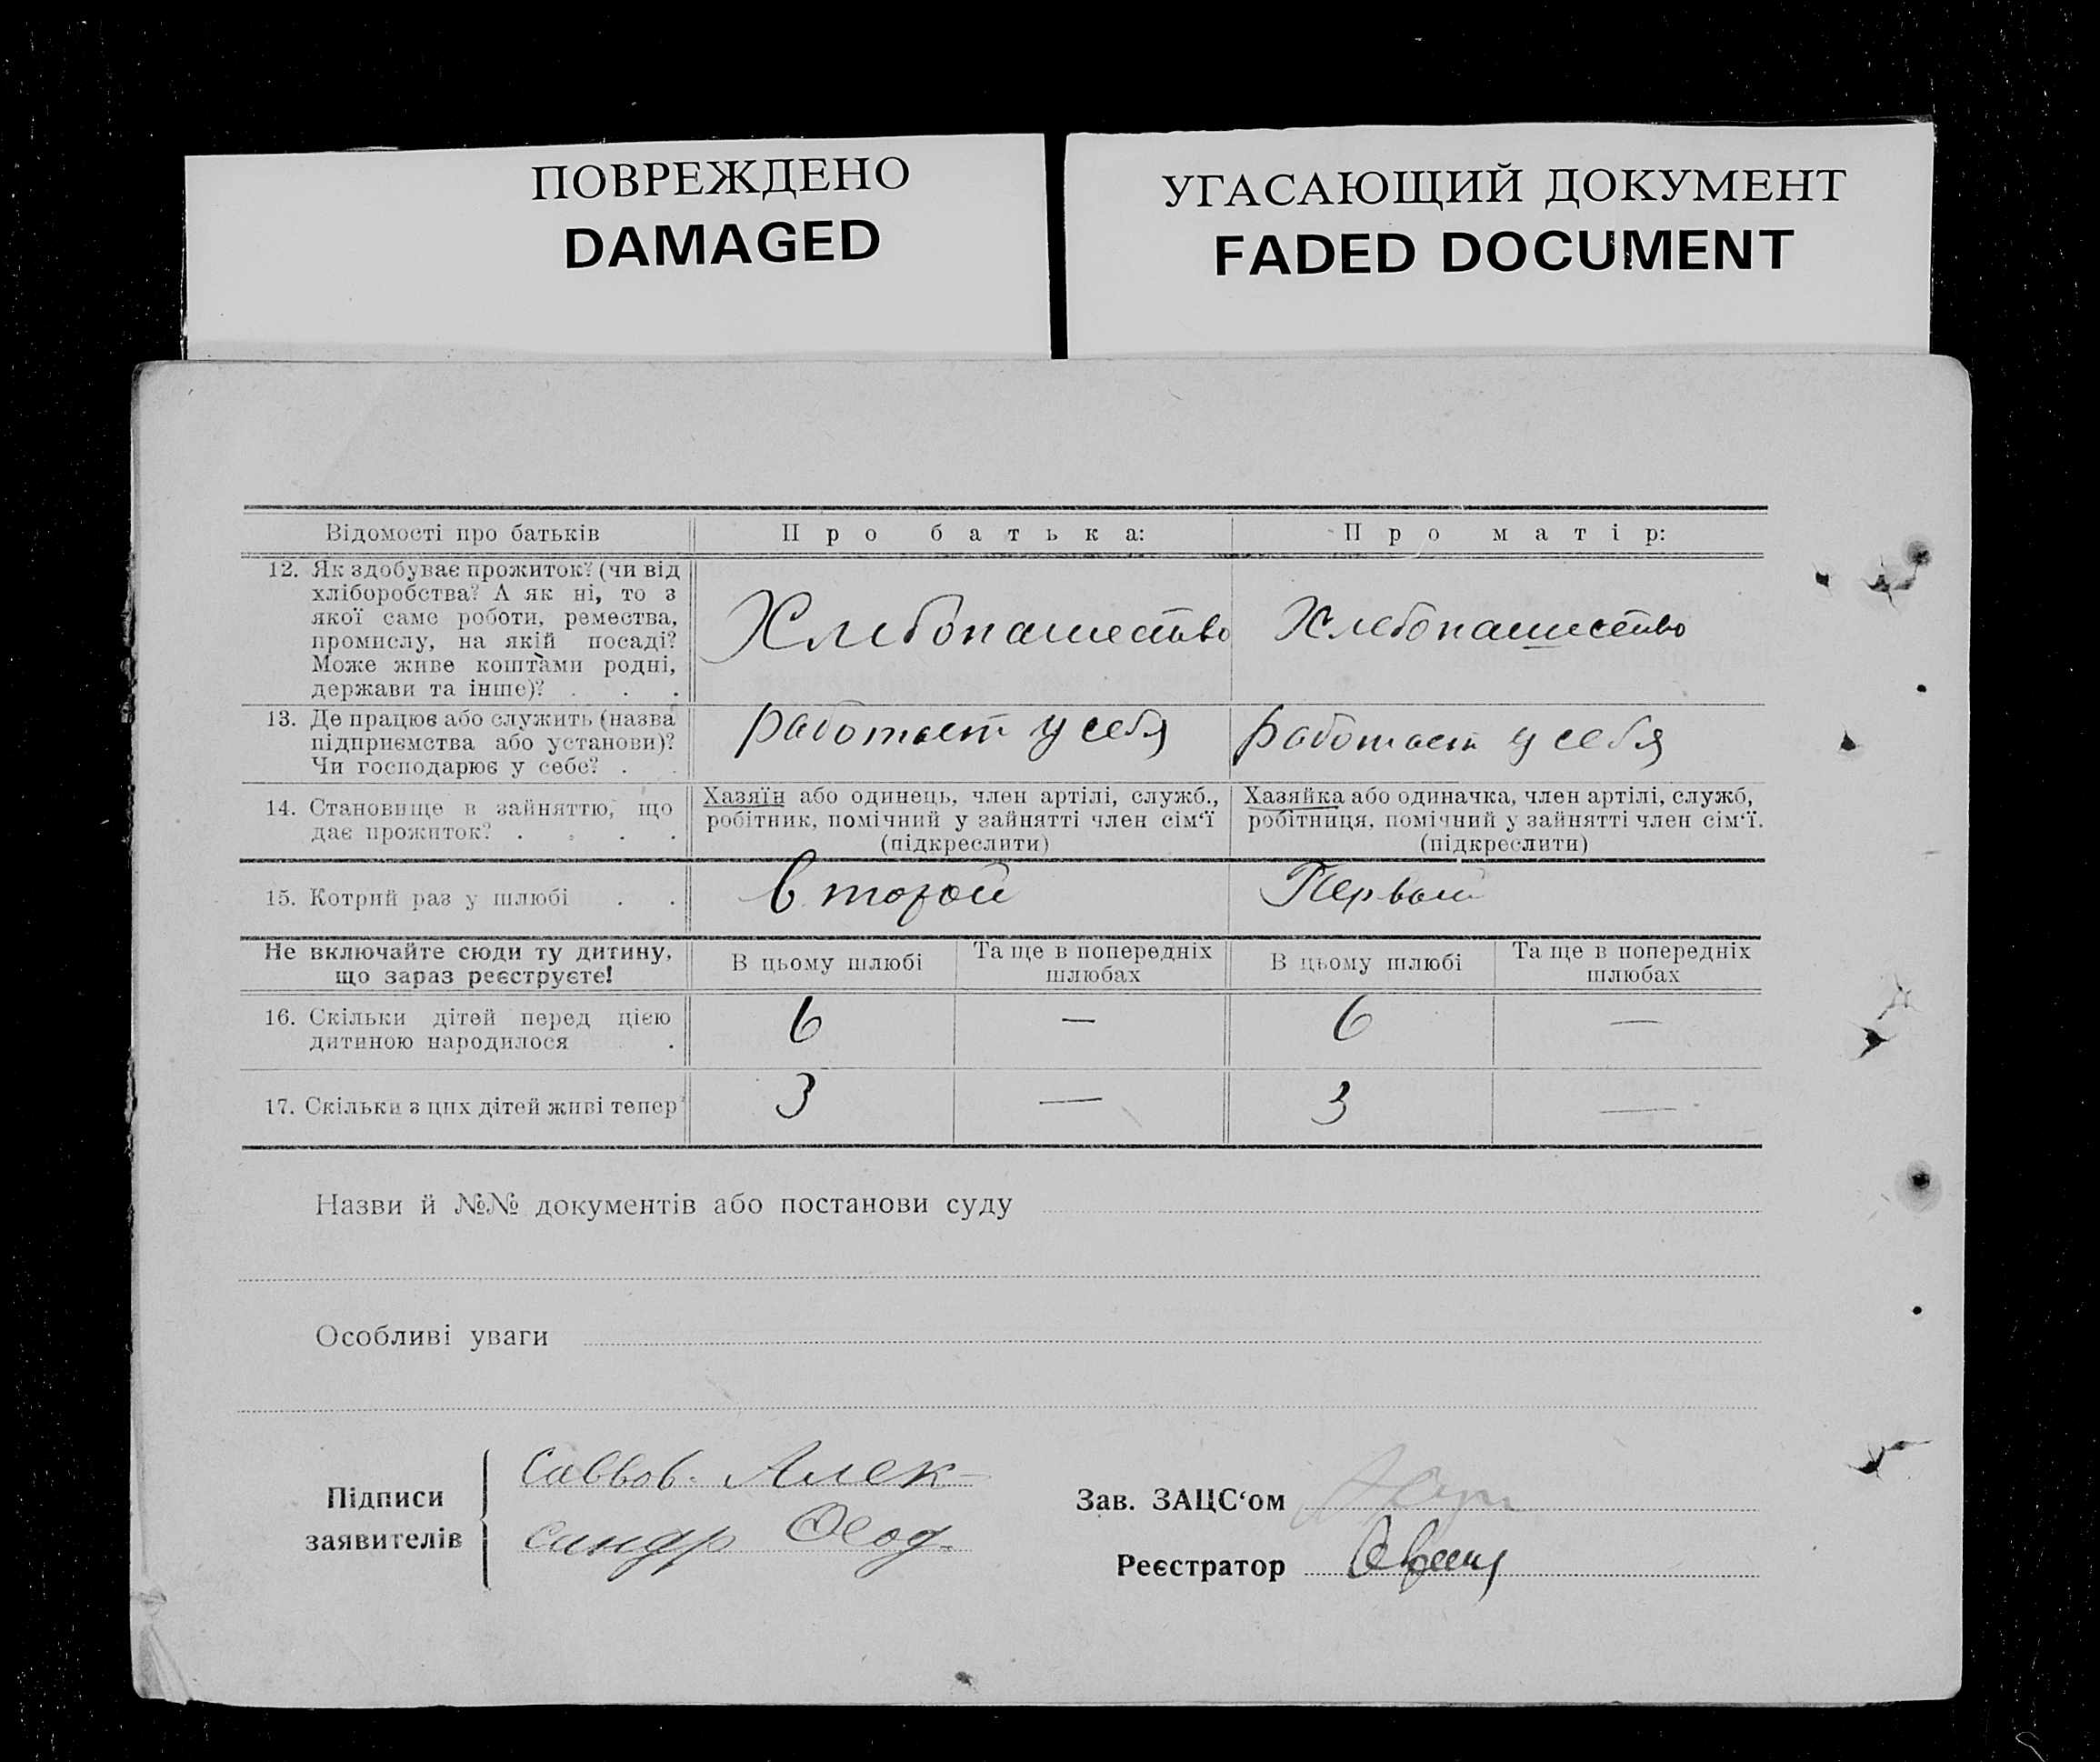 ПОВРЕЖДЕНО
DAMAGED
УГАСАЮЩИЙ ДОКУМЕНТ
FADED DOCUMENT
Відомості про батьків
Про батька:
Про матір:
12. Як здобуває прожиток? (чи від
хліборобства? А як ні, то з
якої саме роботи, ремества,
промислу, на якій посаді?
Може живе коштами родні,
держави та інше)? . . .
Хлебопашество
Хлебопашество
13. Де працює або служить (назва
підприємства або установи)?
Чи господарює у себе? . .
работает у себя
работает у себя
14. Становище в зайняттю, що
дає прожиток? . . . .
Хазяїн або одинець, член артілі, служб.,
робітник, помічний у зайнятті член сім‘ї
(підкреслити)
Хазяйка або одиначка, член артілі, служб,
робітниця, помічний у зайнятті член сім‘ї.
(підкреслити)
15. Котрий раз у шлюбі . .
Второй
Первый
Не включайте сюди ту дитину,
що зараз реєструєте!
В цьому шлюбі
Та ще в попередніх
шлюбах
В цьому шлюбі
Та ще в попередніх
шлюбах
16. Скільки дітей перед цією
дитиною народилося .
6
—
6
—
17. Скільки з цих дітей живі тепер
3
—
3
—
Назви й №№ документів або постанови суду
Особливі уваги
Підписи
заявителів
Саввов. Алек-
сандр
Зав. ЗАЦС‘ом
Реєстратор